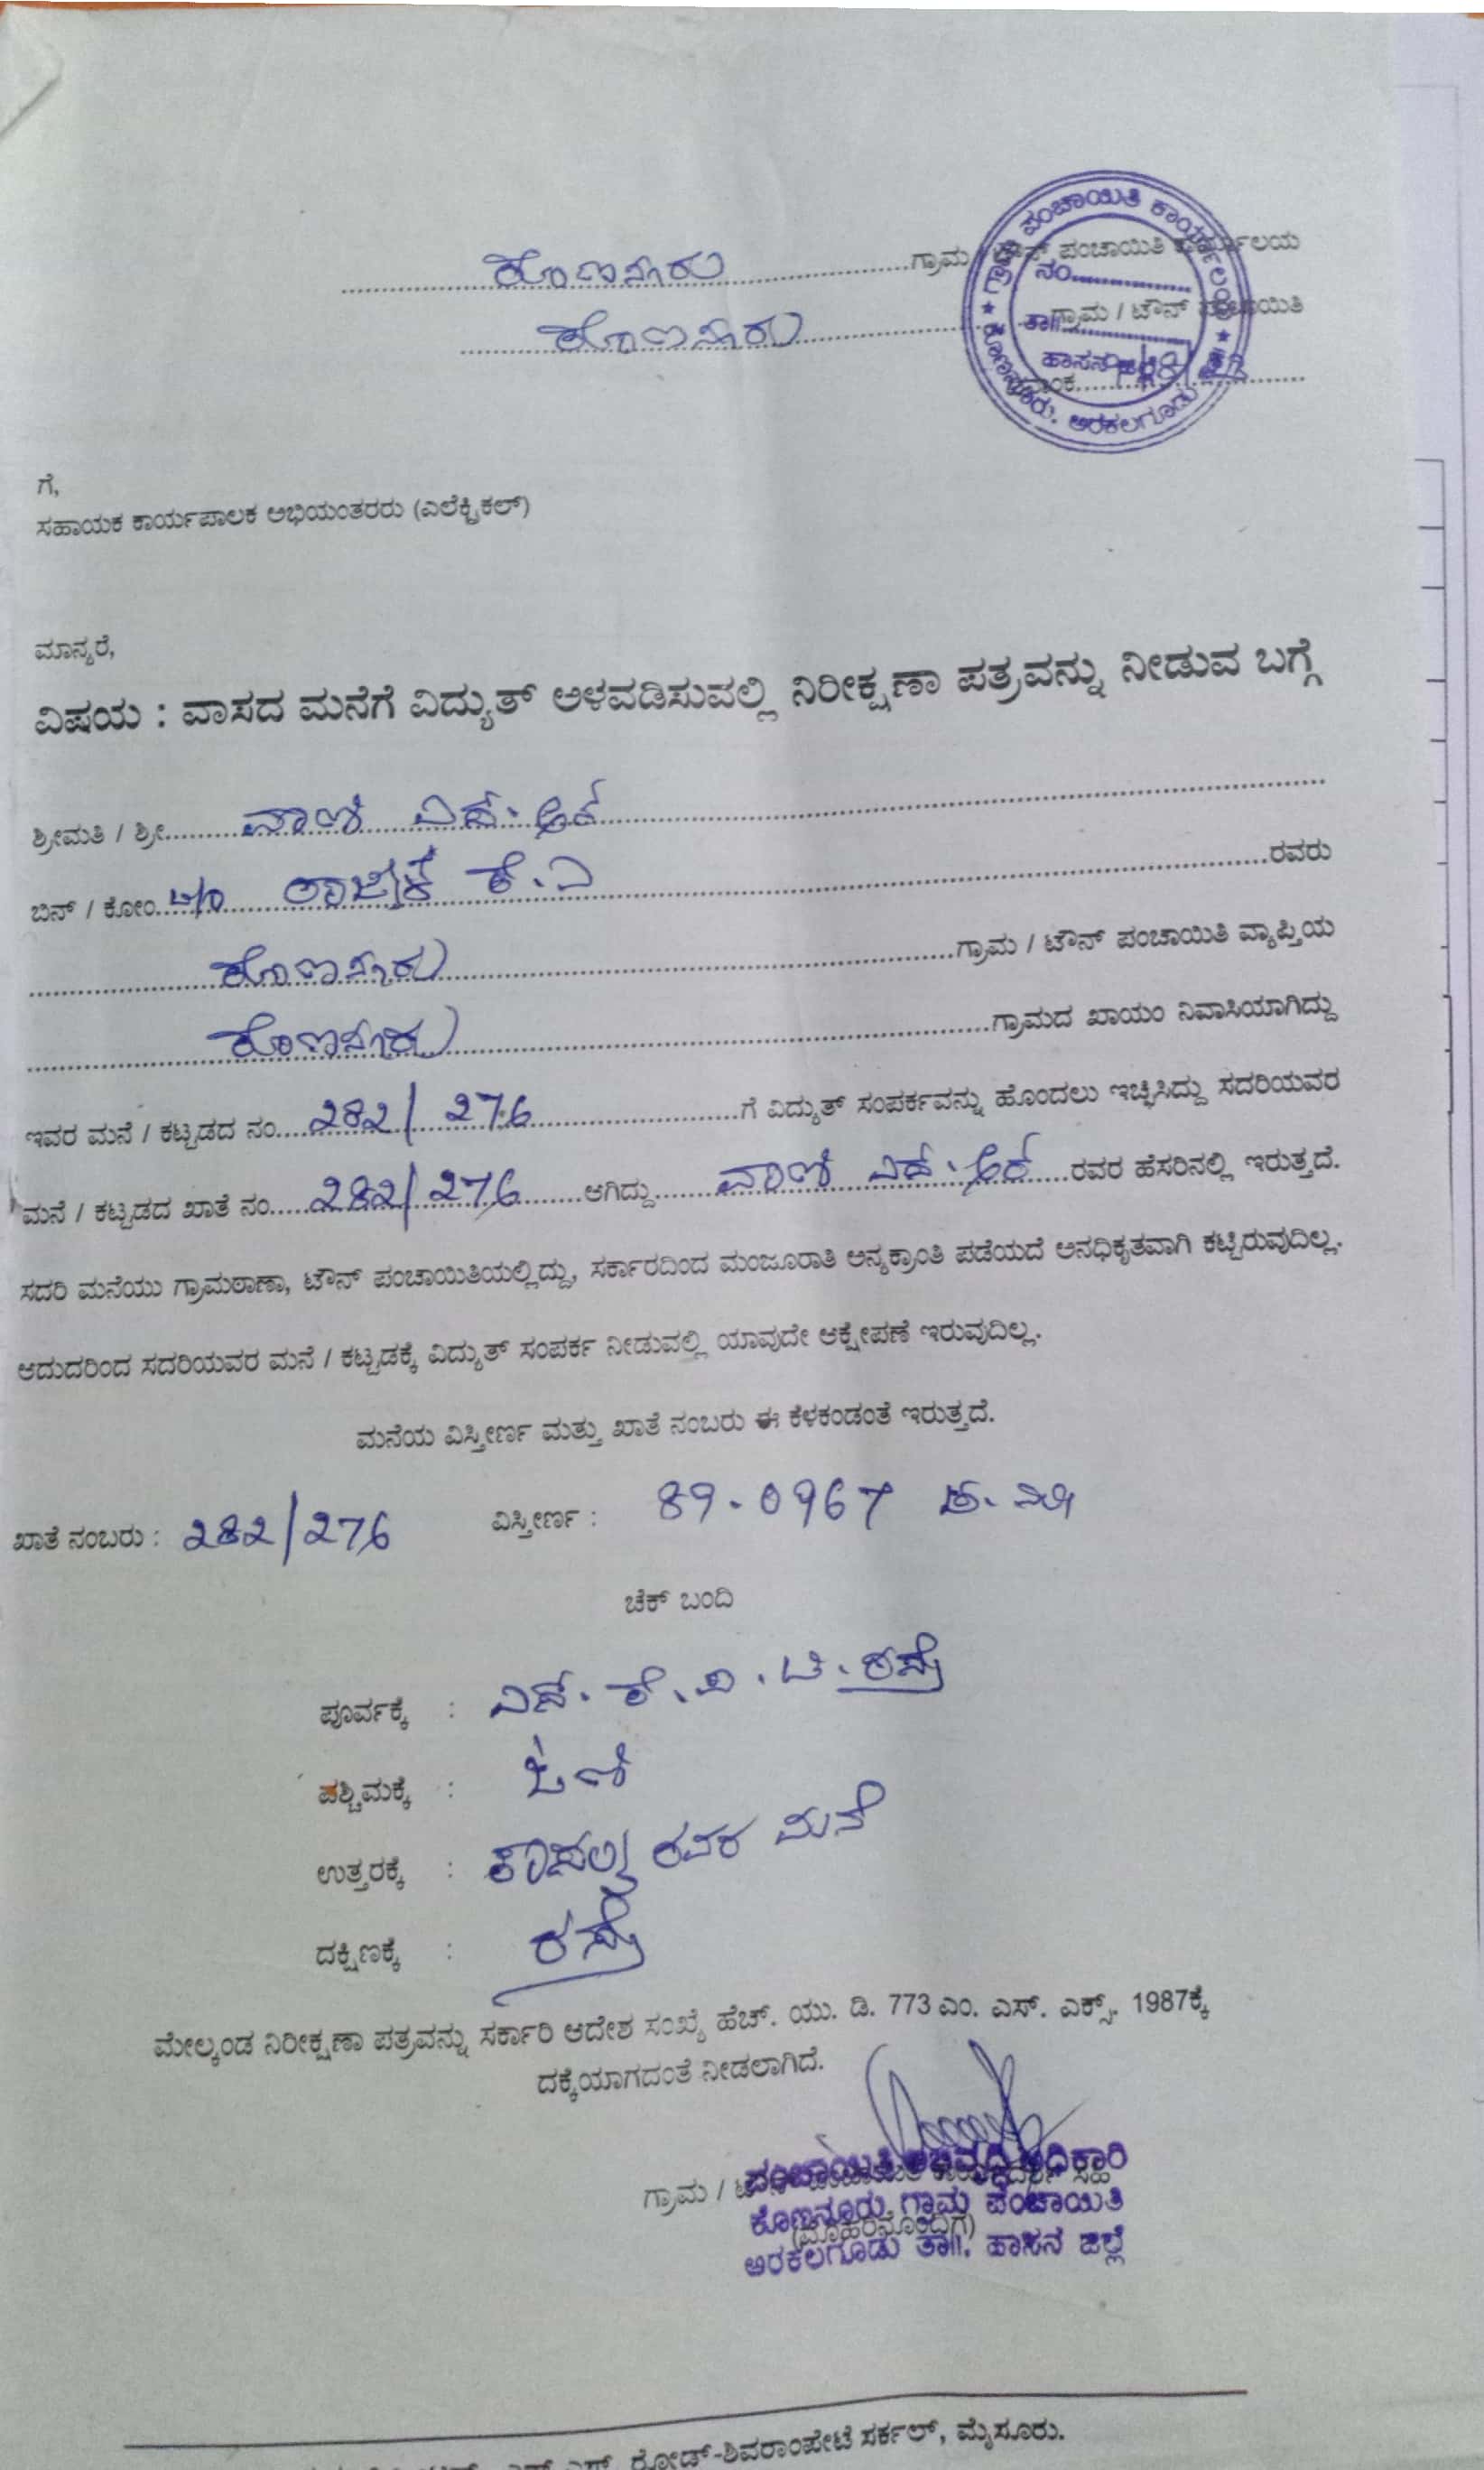 ಕೊಣನೂರು ..........ಗ್ರಾಮ / ಟೌನ್ ಪಂಚಾಯಿತಿ ಕಾರ್ಯಾಲಯ
ಕೊಣನೂರು ..........ಗ್ರಾಮ / ಟೌನ್ ಪಂಚಾಯಿತಿ
ಗ್ರಾಮ ಪಂಚಾಯಿತಿ ಕಾರ್ಯಾಲಯ ★ ಕೊಣನೂರು. ಅರಕಲಗೂಡು
ನಂ..........
ಹಾಸನ
ಗೆ,
ಸಹಾಯಕ ಕಾರ್ಯಪಾಲಕ ಅಭಿಯಂತರರು (ಎಲೆಕ್ಟ್ರಿಕಲ್)
ಮಾನ್ಯರೆ,
ವಿಷಯ : ವಾಸದ ಮನೆಗೆ ವಿದ್ಯುತ್ ಅಳವಡಿಸುವಲ್ಲಿ ನಿರೀಕ್ಷಣಾ ಪತ್ರವನ್ನು ನೀಡುವ ಬಗ್ಗೆ
ಶ್ರೀಮತಿ / ಶ್ರೀ.......... ವಾಣಿ ಎಚ್.ಆರ್ ..........
ಬಿನ್ / ಕೋಂ..... w/o ಕೆ.ಎ ..........ರವರು
ಕೊಣನೂರು ..........ಗ್ರಾಮ / ಟೌನ್ ಪಂಚಾಯಿತಿ ವ್ಯಾಪ್ತಿಯ
ಕೊಣನೂರು ..........ಗ್ರಾಮದ ಖಾಯಂ ನಿವಾಸಿಯಾಗಿದ್ದು
ಇವರ ಮನೆ / ಕಟ್ಟಡದ ನಂ..... 282/276 ..........ಗೆ ವಿದ್ಯುತ್ ಸಂಪರ್ಕವನ್ನು ಹೊಂದಲು ಇಚ್ಛಿಸಿದ್ದು ಸದರಿಯವರ
ಮನೆ / ಕಟ್ಟಡದ ಖಾತೆ ನಂ..... 282/276 .....ಆಗಿದ್ದು..... ವಾಣಿ ಎಚ್.ಆರ್ .....ರವರ ಹೆಸರಿನಲ್ಲಿ ಇರುತ್ತದೆ.
ಸದರಿ ಮನೆಯು ಗ್ರಾಮಠಾಣಾ, ಟೌನ್ ಪಂಚಾಯಿತಿಯಲ್ಲಿದ್ದು, ಸರ್ಕಾರದಿಂದ ಮಂಜೂರಾತಿ ಅನ್ಯಕ್ರಾಂತಿ ಪಡೆಯದೆ ಅನಧಿಕೃತವಾಗಿ ಕಟ್ಟಿರುವುದಿಲ್ಲ.
ಆದುದರಿಂದ ಸದರಿಯವರ ಮನೆ / ಕಟ್ಟಡಕ್ಕೆ ವಿದ್ಯುತ್ ಸಂಪರ್ಕ ನೀಡುವಲ್ಲಿ ಯಾವುದೇ ಆಕ್ಷೇಪಣೆ ಇರುವುದಿಲ್ಲ.
ಮನೆಯ ವಿಸ್ತೀರ್ಣ ಮತ್ತು ಖಾತೆ ನಂಬರು ಈ ಕೆಳಕಂಡಂತೆ ಇರುತ್ತದೆ.
ಖಾತೆ ನಂಬರು : 282/276 ವಿಸ್ತೀರ್ಣ : 89.0967 ಚ.ಮೀ
ಚೆಕ್ ಬಂದಿ
ಪೂರ್ವಕ್ಕೆ : ಎಚ್.ಕೆ.ವಿ.ಟಿ.ರಸ್ತೆ
ಪಶ್ಚಿಮಕ್ಕೆ : ಓಣಿ
ಉತ್ತರಕ್ಕೆ : ರವರ ಮನೆ
ದಕ್ಷಿಣಕ್ಕೆ : ರಸ್ತೆ
ಮೇಲ್ಕಂಡ ನಿರೀಕ್ಷಣಾ ಪತ್ರವನ್ನು ಸರ್ಕಾರಿ ಆದೇಶ ಸಂಖ್ಯೆ ಹೆಚ್. ಯು. ಡಿ. 773 ಎಂ. ಎಸ್. ಎಕ್ಸ್. 1987ಕ್ಕೆ
ದಕ್ಕೆಯಾಗದಂತೆ ನೀಡಲಾಗಿದೆ.
ಪಂಚಾಯಿತಿ ಅಭಿವೃದ್ಧಿ ಅಧಿಕಾರಿ
ಗ್ರಾಮ / ಟೌನ್ ಪಂಚಾಯಿತಿ ಕಾರ್ಯದರ್ಶಿ ಸಹಿ
ಕೊಣನೂರು ಗ್ರಾಮ ಪಂಚಾಯಿತಿ
(ಮೊಹರಿನೊಂದಿಗೆ)
ಅರಕಲಗೂಡು ತಾ||. ಹಾಸನ ಜಿಲ್ಲೆ
ರೋಡ್-ಶಿವರಾಂಪೇಟೆ ಸರ್ಕಲ್, ಮೈಸೂರು.